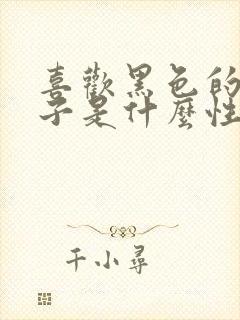 喜歡黑色的
子是什麼性
千小尋